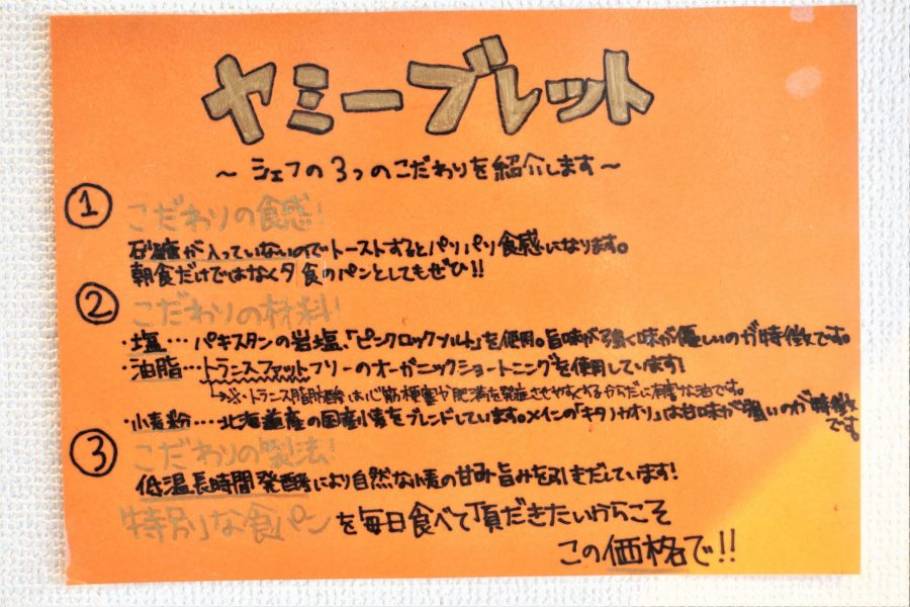 ヤミーブレット
～シェフの3つのこだわりを紹介します～
① こだわりの食感!
砂糖が入っていないのでトーストするとパリパリ食感になります。
朝食だけではなく夕食のパンとしてもぜひ!!
② こだわりの材料!
・塩…パキスタンの岩塩、「ピンクロックソルト」を使用。旨味が強く味が優しいのが特徴です。
・油脂…トランスファットフリーのオーガニックショートニングを使用しています!
※・トランス脂肪酸は心筋梗塞や肥満を発症させやすくするからだに有害な油です。
・小麦粉…北海道産の国産小麦をブレンドしています。メインの「キタノカオリ」は甘味が強いのが特徴
です。
③ こだわりの製法!
低温長時間発酵により自然な小麦の甘み旨みを引きだしています!
特別な食パンを毎日食べて頂だきたいからこそ
この価格で!!